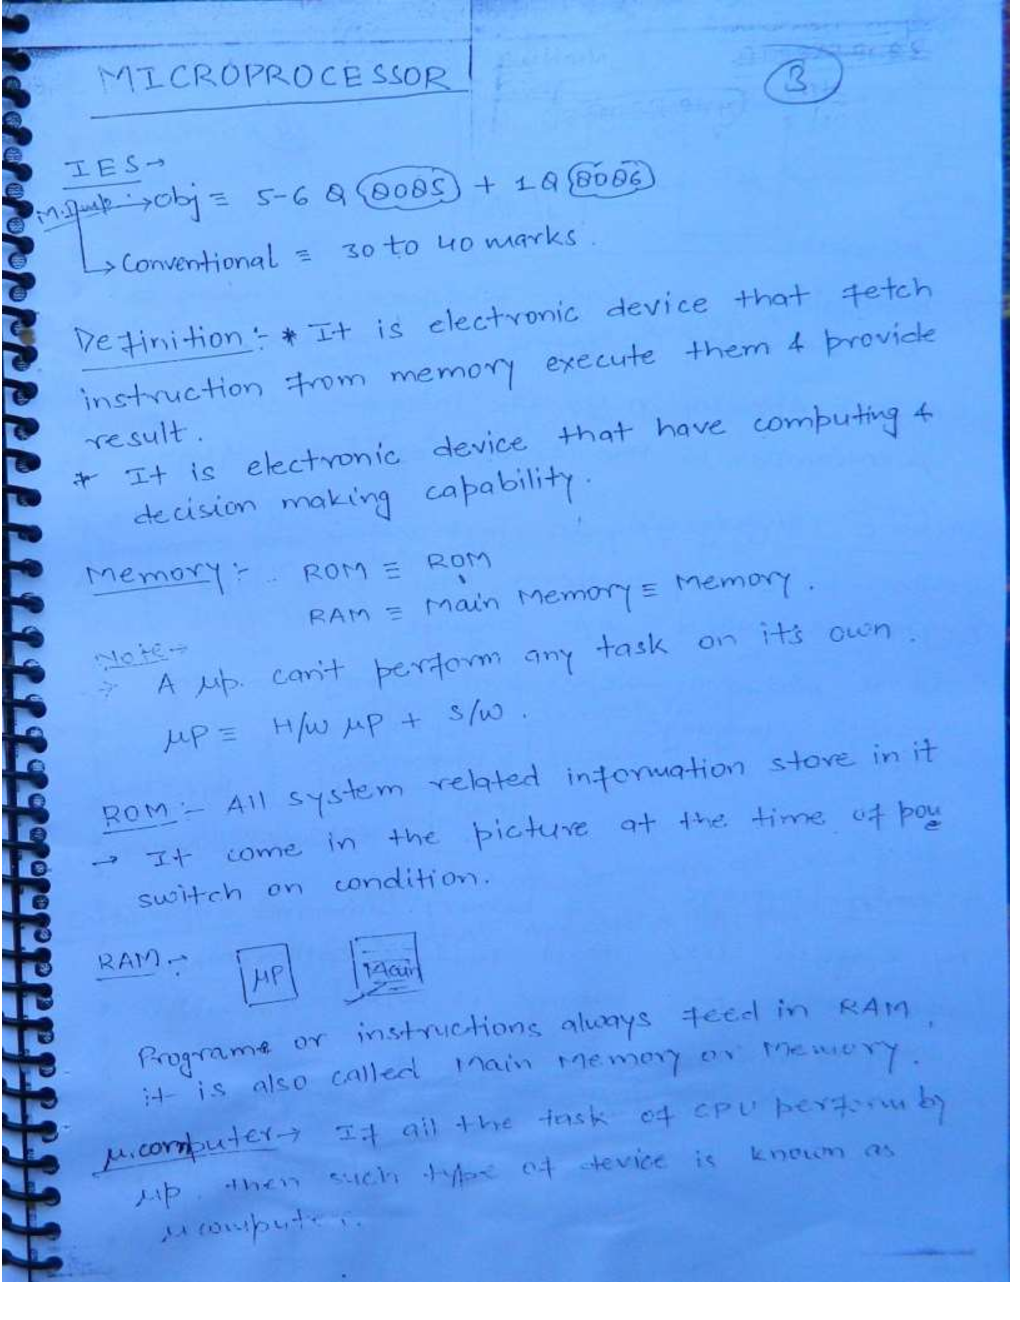 MICROPROCESSOR
3
IES→
M.Imp. →Obj ≡ 5-6 Q (8085) + 1Q (8086)
↳ Conventional ≡ 30 to 40 marks.
Definition:- * It is electronic device that fetch
instruction from memory execute them & provide
result.
* It is electronic device that have computing &
decision making capability.
Memory:- ROM ≡ ROM
RAM ≡ Main Memory ≡ Memory.
Note→
→ A μp. can't perform any task on it's own.
μP ≡ H/W μP + S/W.
ROM:- All system related information store in it
→ It come in the picture at the time of pow
switch on condition.
RAM:- μP Main
Programs or instructions always feed in RAM,
it is also called Main Memory or Memory.
μ.computer→ If all the task of CPU perform by
μp. then such type of device is known as
μ computer.